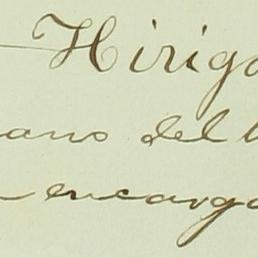 Hirigo
ano del
encarga